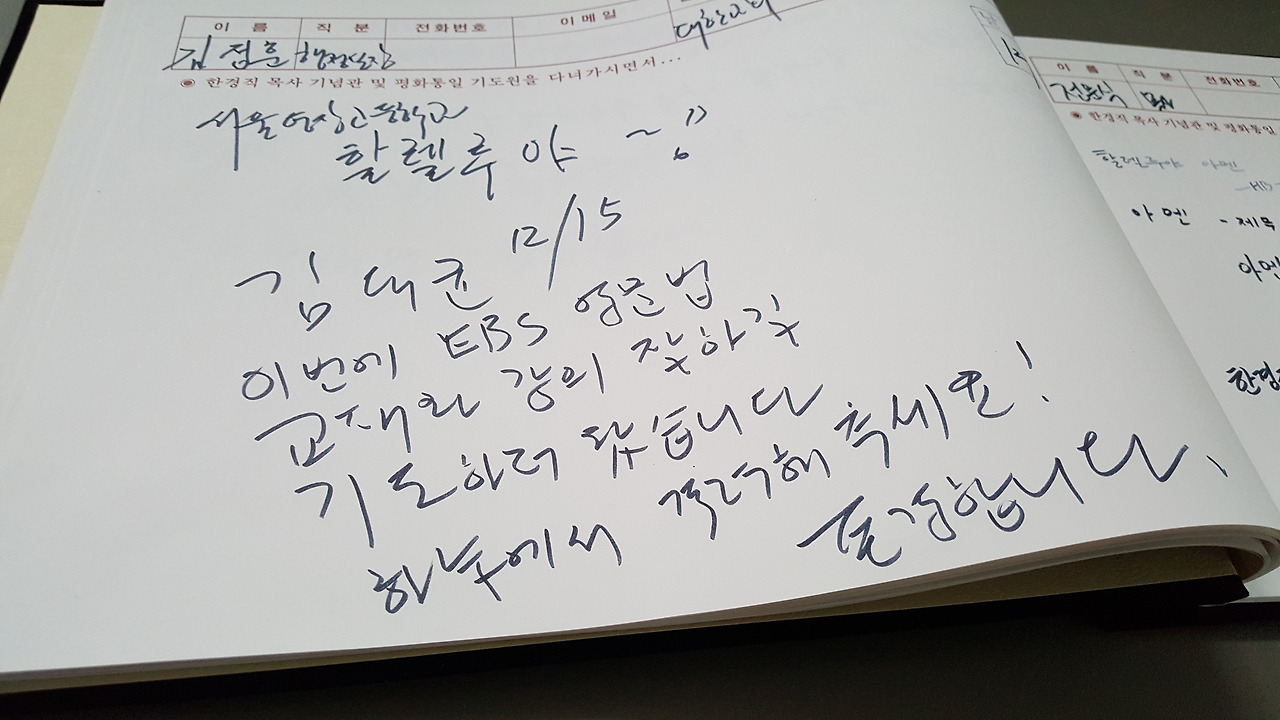 이 름 직 분 전화번호 이 메 일
김 점 훈 행정실장
◉ 한경직 목사 기념관 및 평화통일 기도원을 다녀가시면서…
서울영상고등학교
할렐루야 ~
12/15
김대균
이번에 EBS 영문법
교재와 강의 잘하길
기도하러 왔습니다
하늘에서 격려해 주세요!
존경합니다.
이 름 직 분 전화번호
◉ 한경직 목사 기념관 및 평화통일
할렐루야 아멘
아 멘 - 제목
아멘
한경